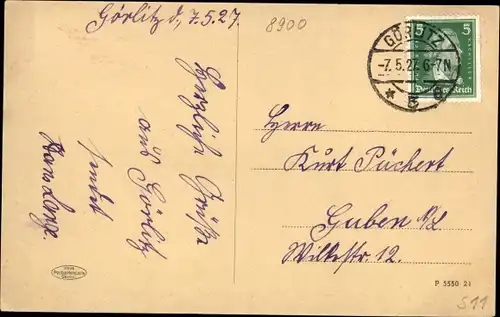 Görlitz d, 7.5.27.
8900
Herzliche Grüße
aus Görlitz
sendet
Hans Lange.
5 5
Deutsches Reich
GÖRLITZ
-7.5.27.6-7N
* 5 d
Herrn
Kurt Püchert
Guben N/L
Wilkestr. 12.
P 5550 21
S11